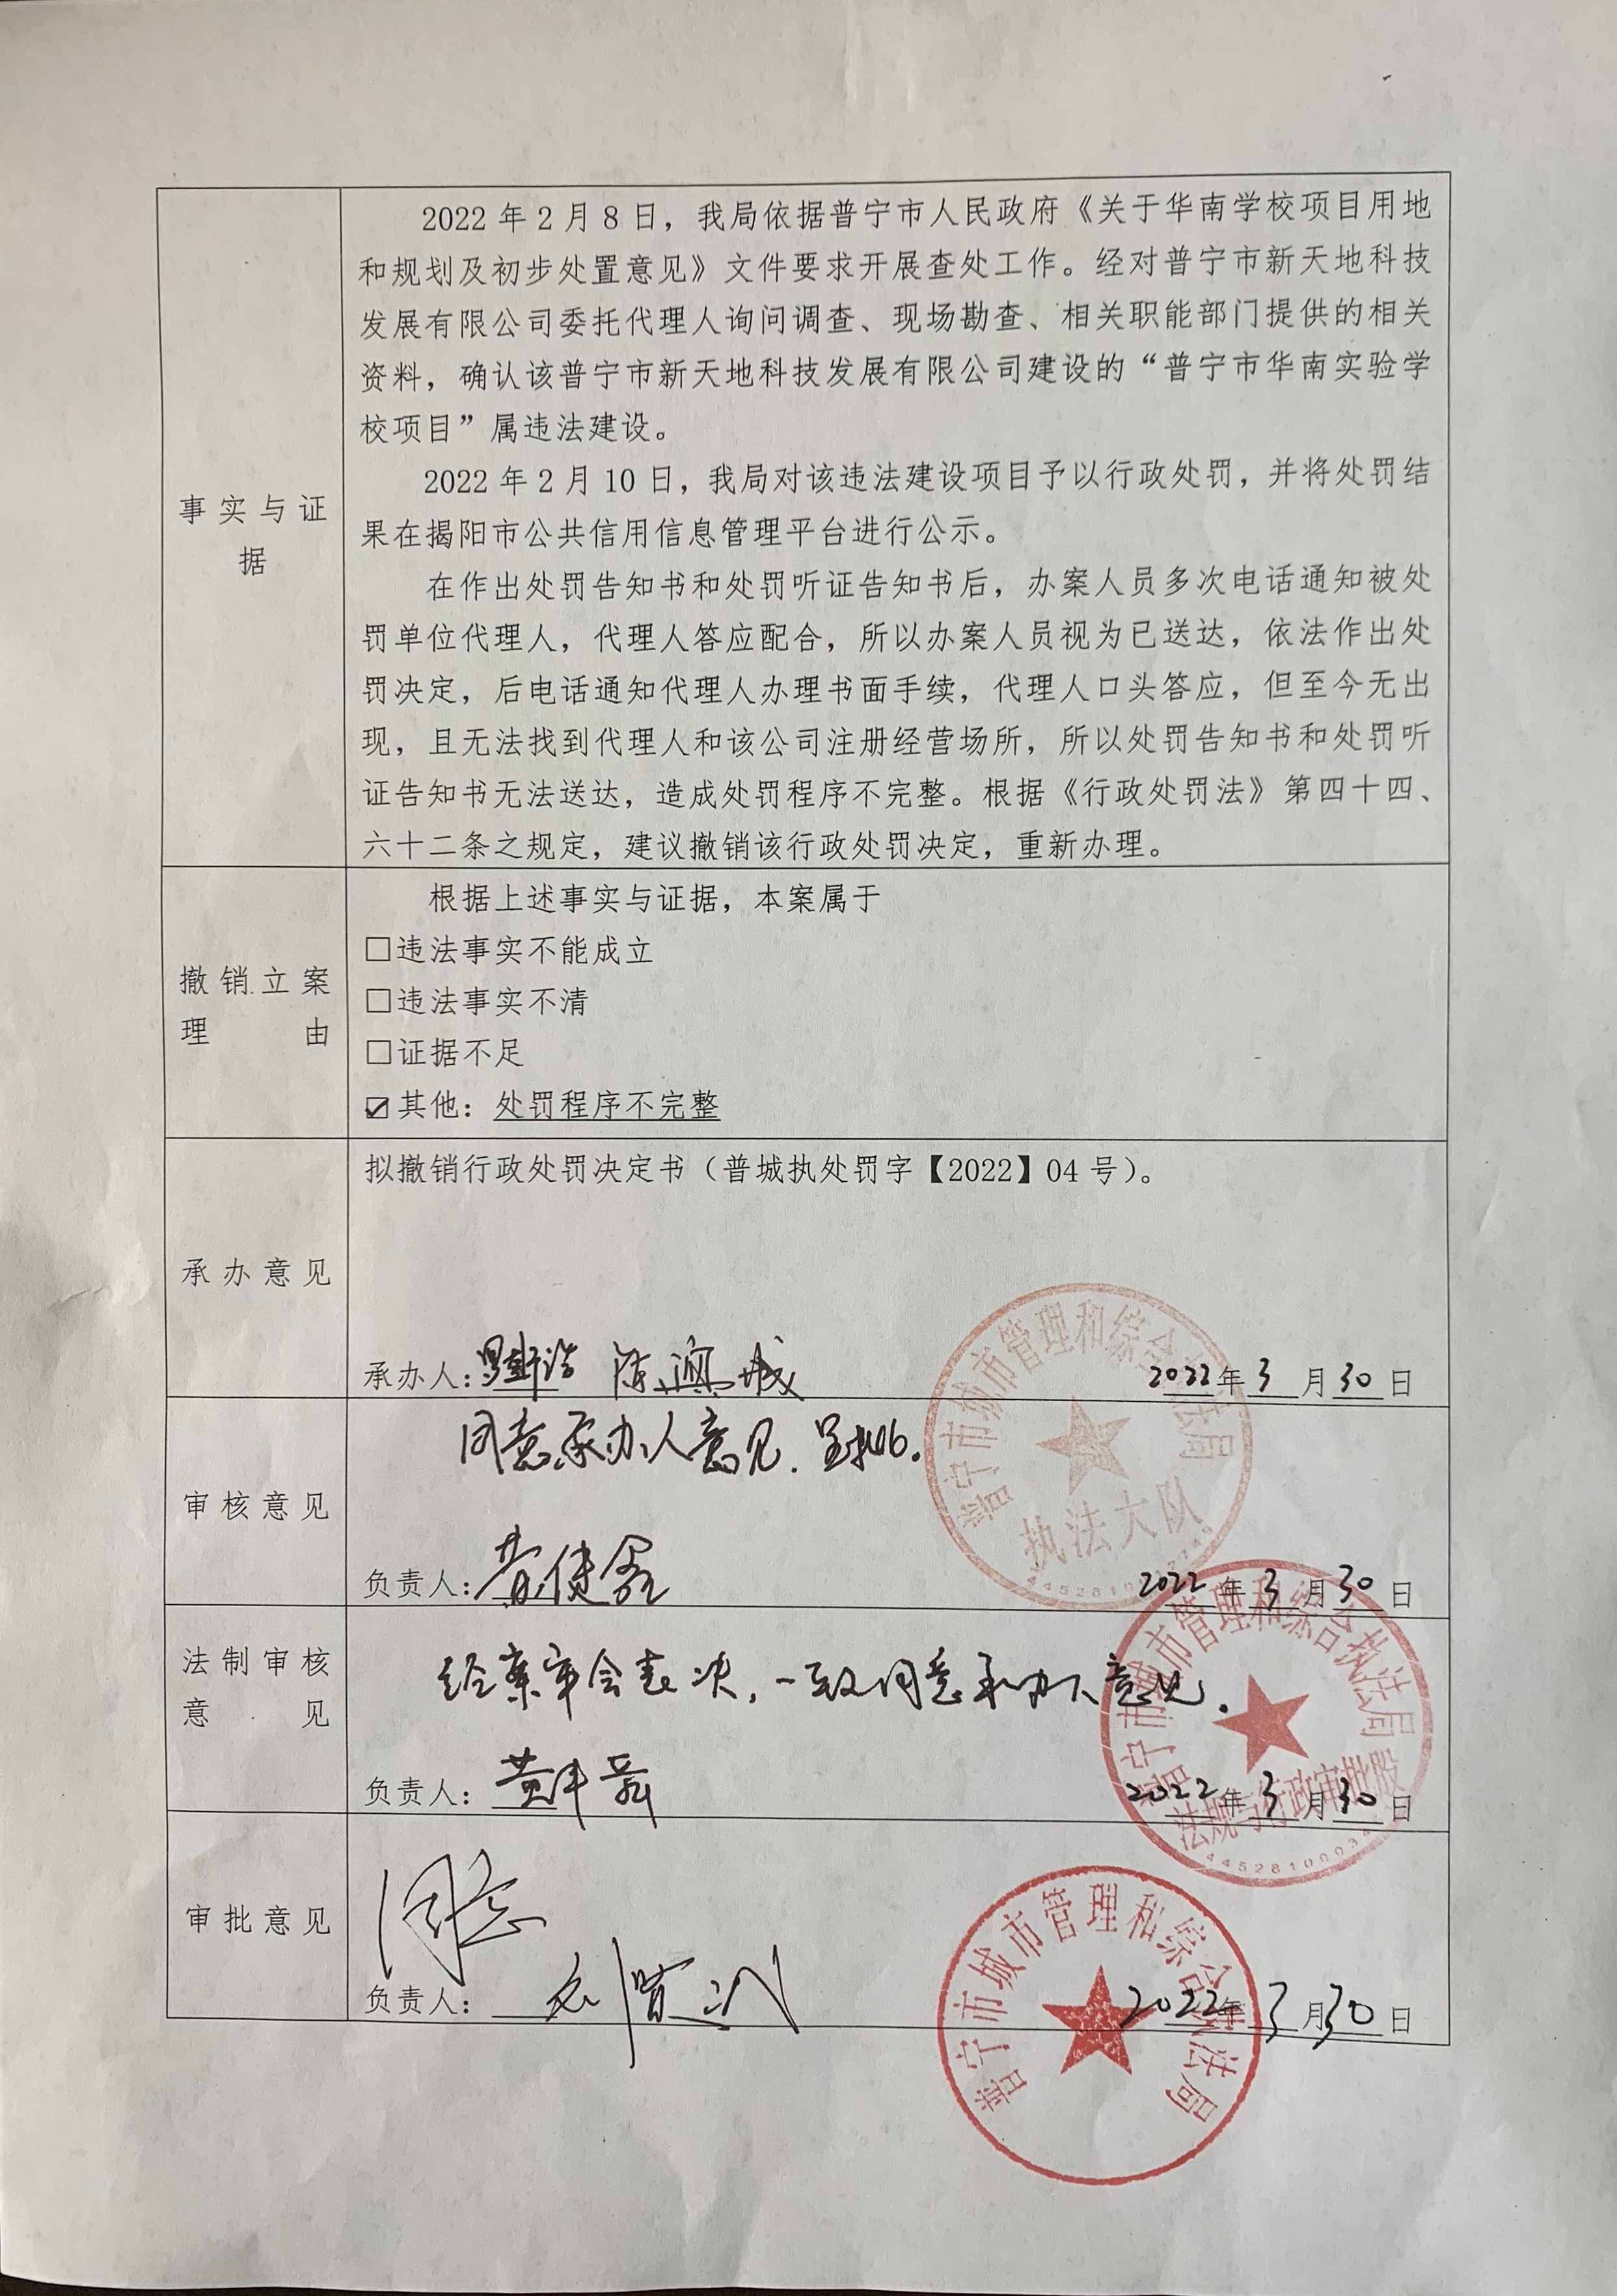 2022年2月8日，我局依据普宁市人民政府《关于华南学校项目用地
和规划及初步处置意见》文件要求开展查处工作。经对普宁市新天地科技
发展有限公司委托代理人询问调查、现场勘查、相关职能部门提供的相关
资料，确认该普宁市新天地科技发展有限公司建设的“普宁市华南实验学
校项目”属违法建设。
2022年2月10日，我局对该违法建设项目予以行政处罚，并将处罚结
事实与证
据
果在揭阳市公共信用信息管理平台进行公示。
在作出处罚告知书和处罚听证告知书后，办案人员多次电话通知被处
罚单位代理人，代理人答应配合，所以办案人员视为已送达，依法作出处
罚决定，后电话通知代理人办理书面手续，代理人口头答应，但至今无出
现，且无法找到代理人和该公司注册经营场所，所以处罚告知书和处罚听
证告知书无法送达，造成处罚程序不完整。根据《行政处罚法》第四十四、
六十二条之规定，建议撤销该行政处罚决定，重新办理。
撤销立案
理由
根据上述事实与证据，本案属于
□违法事实不能成立
□违法事实不清
□证据不足
☑其他：处罚程序不完整
承办意见
拟撤销行政处罚决定书（普城执处罚字【2022】04号）。
承办人：
2022年3月30日
审核意见
同意承办人意见．呈批。
负责人：
2022年3月30日
普宁市城市管理和综合执法局
执法大队
法制审核
意见
经案审会表决，一致同意承办人意见．
负责人：
2022年3月30日
普宁市城市管理和综合执法局
法规与行政审批股
审批意见
同意
负责人：
2022年3月30日
普宁市城市管理和综合执法局